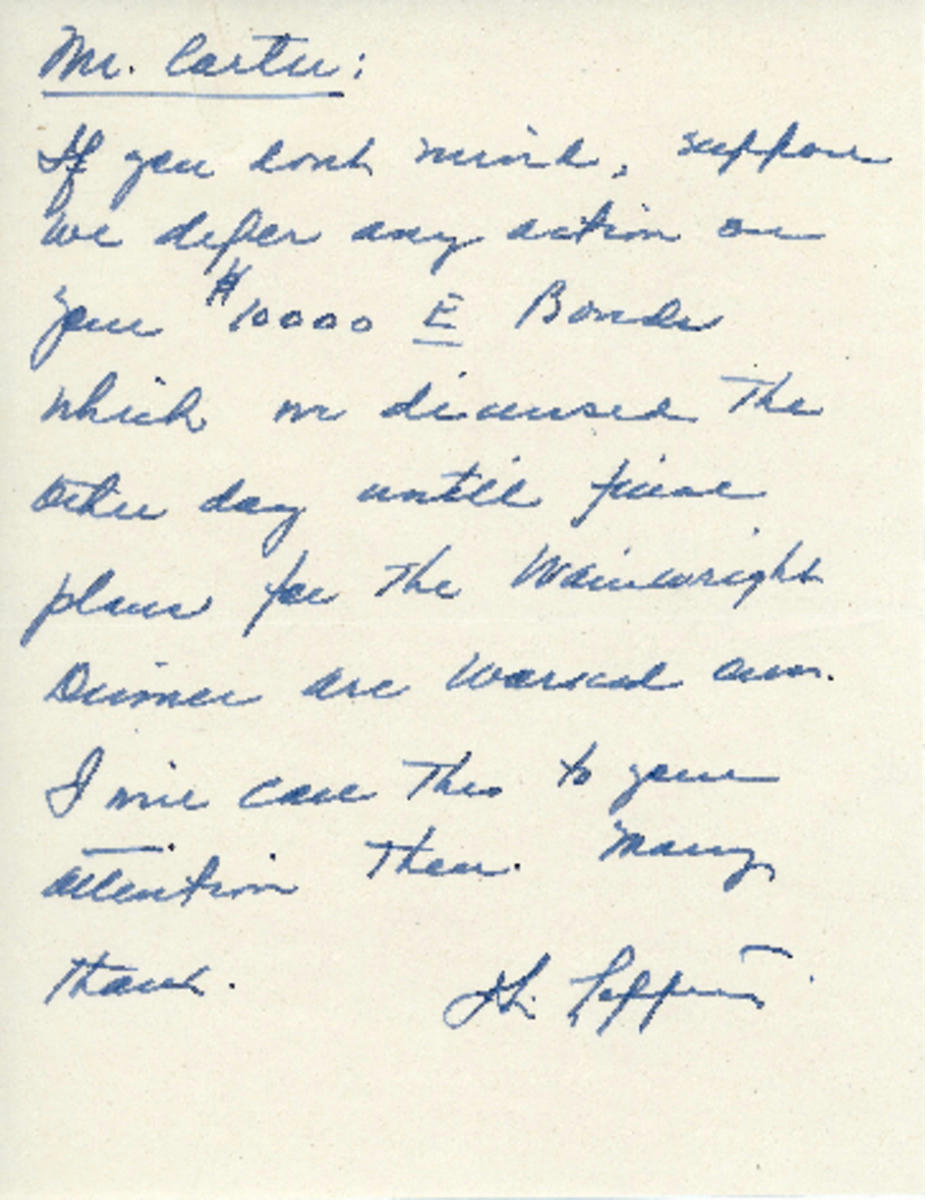 Mr. Carter:
If you dont mind, suppose
we defer any action on
your $10000 E Bonds
which we discussed the
other day untill final
plans for the Wainwright
Dinner are worked out.
I will call this to your
attention then. Many
thanks.